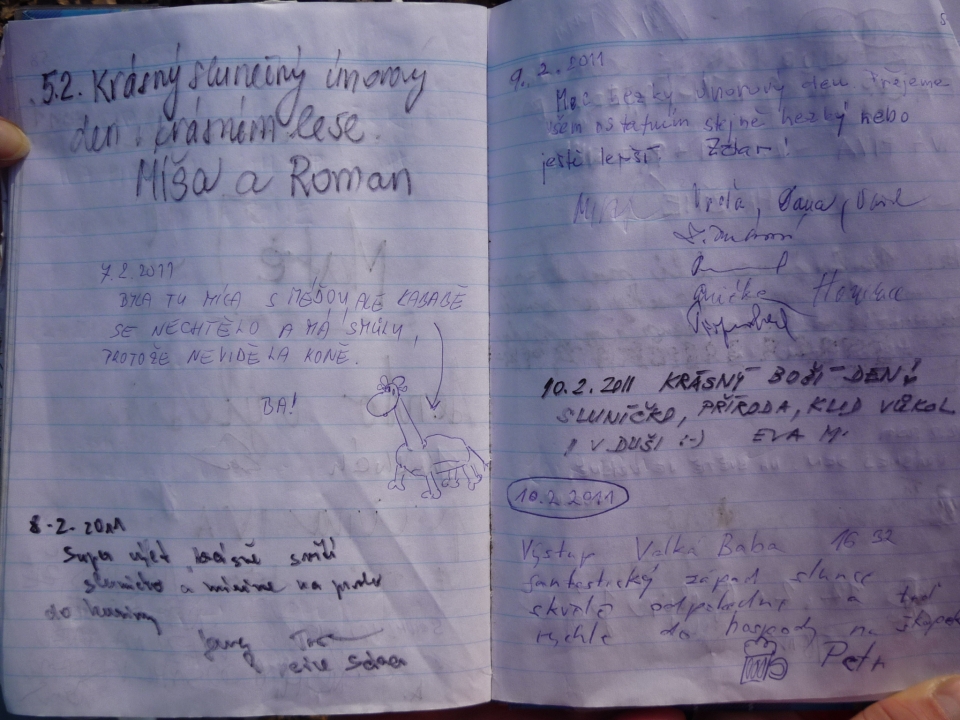 5.2. Krásný slunečný únorový
den v krásném lese.
Míša a Roman
7.2.2011
BYLA TU MÍCA S MÉĎOU, ALE KABABĚ
SE NECHTĚLO A MÁ SMŮLU,
PROTOŽE NEVIDĚLA KONĚ.
BA!
8.2.2011
Super výlet, krásně svítí
sluníčko a míříme na
do
5
9.2.2011
Moc hezký únorový den. Přejeme
všem ostatním stejně hezký nebo
ještě lepší. Zdar!
Dana,
10.2.2011 KRÁSNÝ BOŽÍ DEN!
SLUNÍČKO, PŘÍRODA, KLID VŮKOL
I V DUŠI :-) EVA M.
10.2.2011
Výstup Velká Baba 16 32
fantastický západ slunce
skvělé odpoledne a teď
rychle do hospody na
Petr